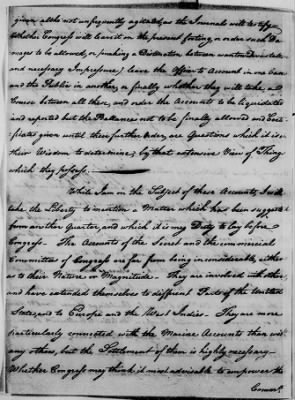 given, altho not unfrequently agitated, as the Journals will testify
Whether Congress will leave it on the present footing, or order such Da-
mages to be allowed, or making a Distinction between wanton Devastation
and necessary Impressure, leave the Officer to Account in one Case
and the Public in another, or finally whether they will take, a
Course between all these, and order the Accounts to be liquidated
and reported but the Ballances not to be finally allowed and Certi-
ficates given until their further Order, are Questions which it is in
their Wisdom to determine, by that extensive View of Things
which they possess.
While I am on the Subject of these Accounts, I will
take the Liberty to mention a Matter which has been suggested
from another Quarter, and which it is my Duty to lay before
Congress. The Accounts of the Secret and the commercial
Committees of Congress are far from being inconsiderable, either
as to their Nature or Magnitude. They are involved with others,
and have extended themselves to different Parts of the United
States, and to Europe and the West Indies. They are more
particularly connected with the Marine Accounts than with
any others, but the Settlement of them is highly necessary.
Whether Congress may think it most adviseable to empower the
Commrs.